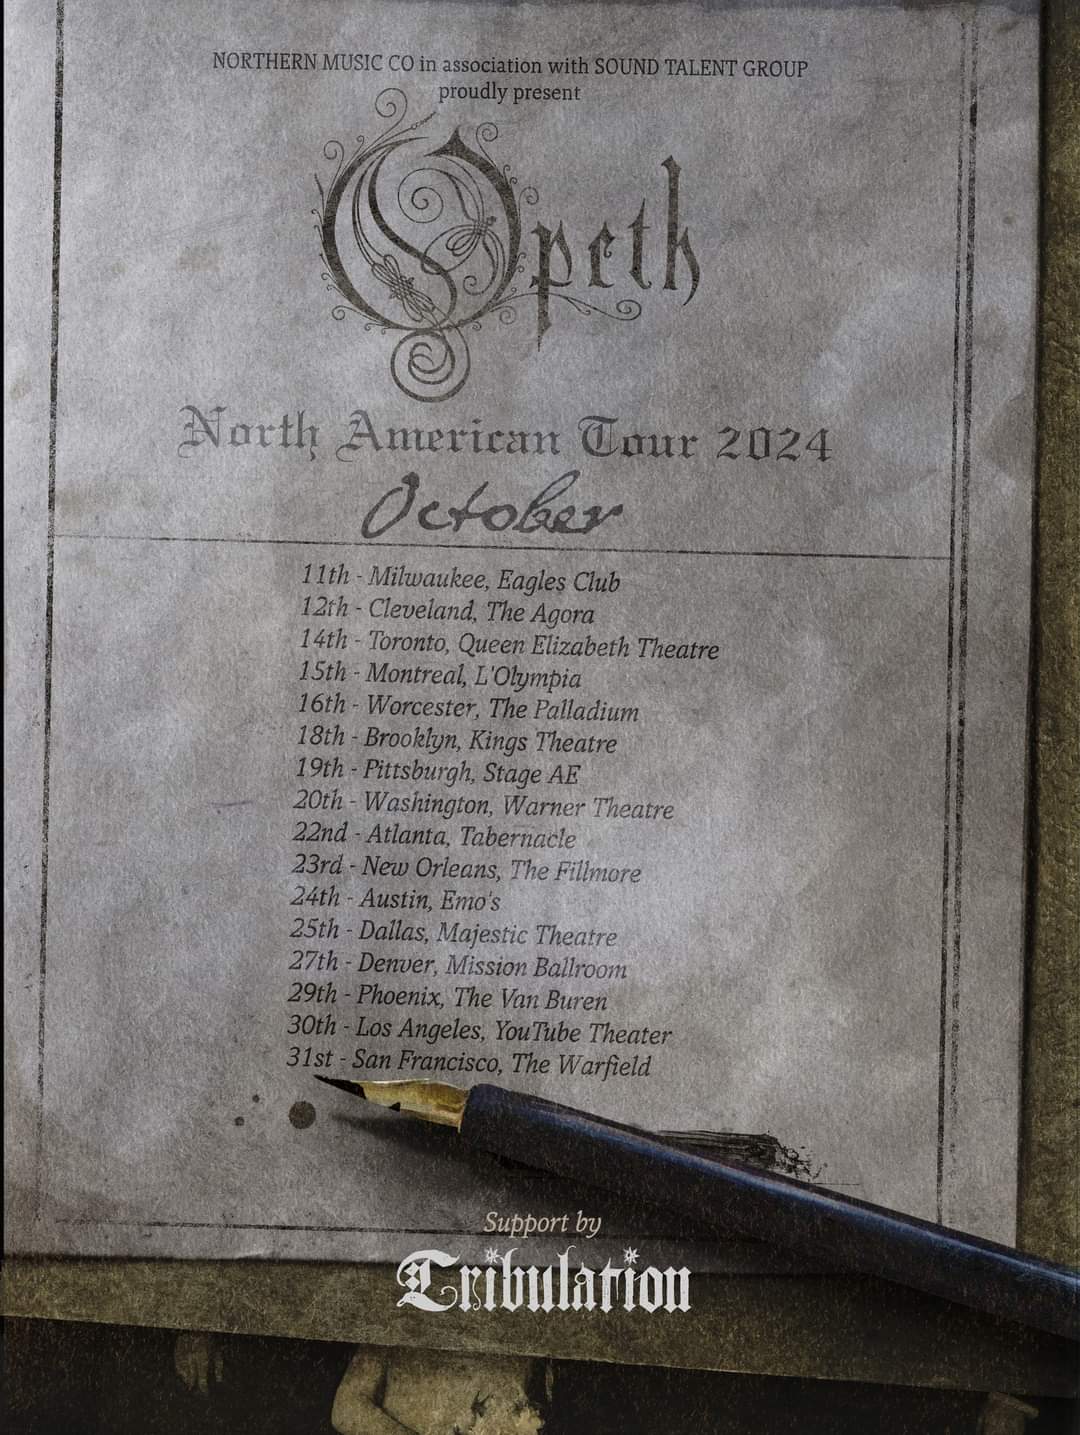 NORTHERN MUSIC CO in association with SOUND TALENT GROUP
proudly present
Opeth
North American Tour 2024
October
11th - Milwaukee, Eagles Club
12th - Cleveland, The Agora
14th - Toronto, Queen Elizabeth Theatre
15th - Montreal, L'Olympia
16th - Worcester, The Palladium
18th - Brooklyn, Kings Theatre
19th - Pittsburgh, Stage AE
20th - Washington, Warner Theatre
22nd - Atlanta, Tabernacle
23rd - New Orleans, The Fillmore
24th - Austin, Emo's
25th - Dallas, Majestic Theatre
27th - Denver, Mission Ballroom
29th - Phoenix, The Van Buren
30th - Los Angeles, YouTube Theater
31st - San Francisco, The Warfield
Support by
Tribulation